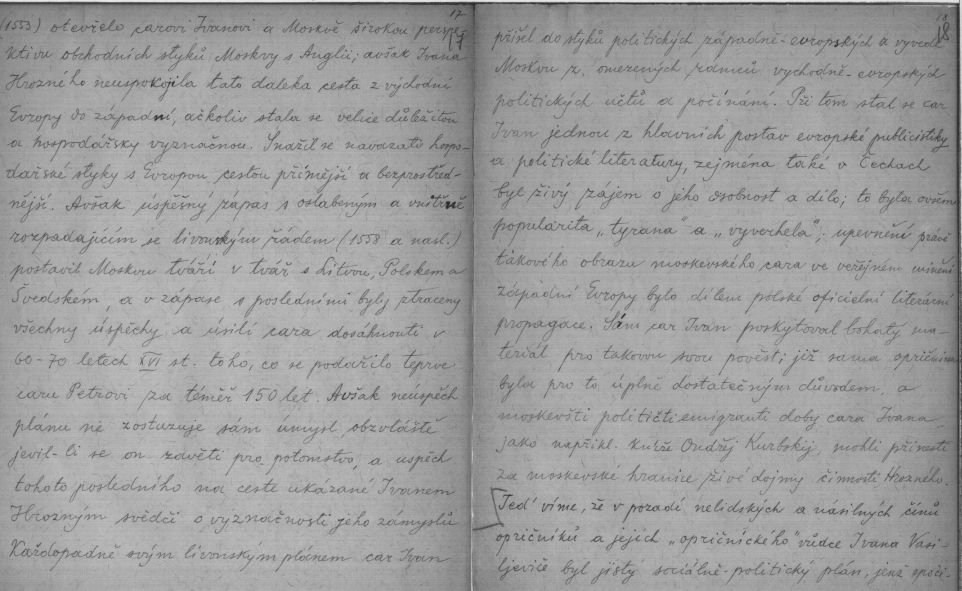 17
17
(1553) otevřelo carovi Ivanovi a Moskvě širokou perspe-
ktivu obchodních styků Moskvy s Anglií; avšak Ivana
Hrozného neuspokojila tato daleka cesta z východní
Evropy do západní, ačkoliv stala se velice důležitou
a hospodářsky vyznačnou. Snažil se navazati hospo-
dářské styky s Evropou cestou přímější a bezprostřed-
nější. Avšak úspěšny zápas s oslabeným a vnitřně
rozpadajícím se livonským řádem (1558 a nasl.)
postavil Moskvu tváří v tvář s Litvou, Polskem a
Švedském, a v zápase s posledními byly ztraceny
všechny úspěchy a úsilí cara dosáhnouti v
60-70 letech XVI st. toho, co se podařilo teprve
caru Petrovi za téměř 150 let. Avšak neúspěch
plánu ne zostuzuje sám úmysl, obzvláště
jevil-li se on závětí pro potomstvo, a uspěch
tohoto posledního na ceste ukázané Ivanem
Hrozným svědčí o vyznačnosti jeho zámyslů
Každopadně svým livonským plánem car Ivan
18
18
přišel do styků politických západně-evropských a vyvedl
Moskvu z omezených rámců vychodně-evropských
politických učtů a počínání. Při tom stal se car
Ivan jednou z hlavních postav evropské publicistiky
a politické literatury, zejména také v Čechach
byl živý zájem o jeho osobnost a dílo; to byla ovšem
popularita „tyrana" a „vyvrhela"; upevnění právě
takového obrazu moskevského cara ve veřejném mínění
západní Evropy bylo dílem polské oficielní literární
propagace. Sám car Ivan poskytoval bohatý ma-
teriál pro takovou svou pověst; již sama opričnina
byla pro to úplně dostatečným důvodem, a
moskevští političtí emigranti doby cara Ivana,
jako napříkl. kníže Ondřej Kurbskij, mohli přinesti
za moskevské hranice živé dojmy činnosti Hrozného.
Teď víme, že v pozadí nelidských a násilných činů
opričníků a jejich „opričnického" vůdce Ivana Vasi-
ljeviče byl jistý sociálně-politický plán, jenž spočí-